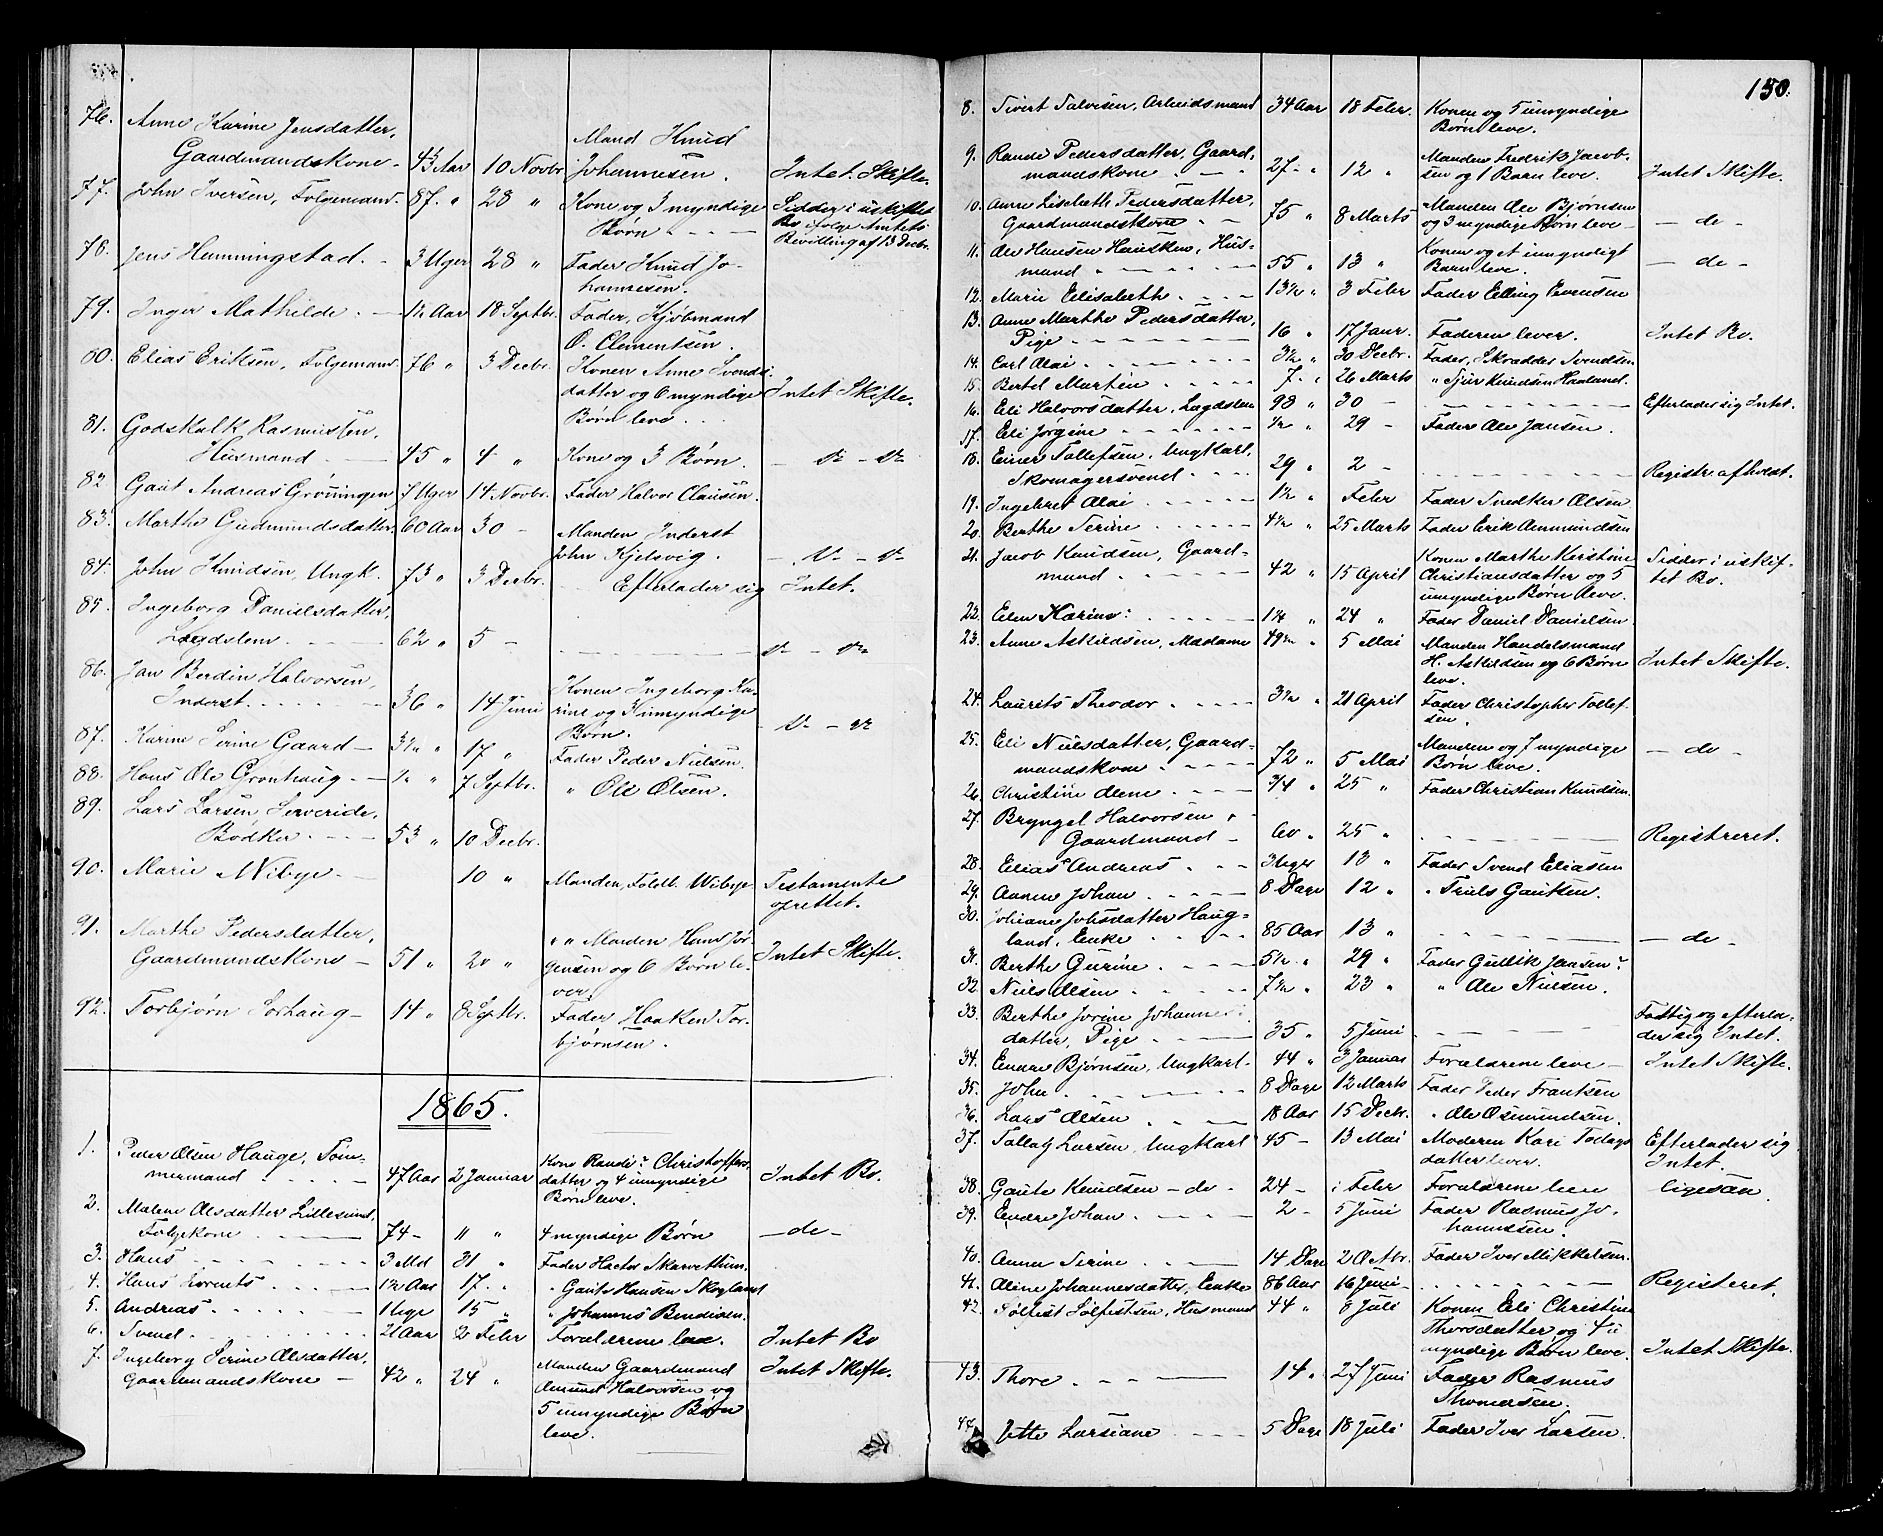 150.
76. Anne Karine Jensdatter,
Gaardmandskone - 43 Aar 10 Novbr. Mand Knud Johannesen. Intet Skifte.
77. John Iversen, Folgemand. 87 " 28 " Kone og 3 myndige Børn - - - Sidder i uskiftet Bo ifølge Amtets Bevilling af 13 Decbr.
78. Jens Hummingstad. - 3 Uger 28 " Fader Knud Johannesen.
79. Inger Mathilde. - 1½ Aar 18 Septbr. Fader, Kjøbmand O. Clementsen.
80. Elias Eriksen, Folgemand. 76 " 3 Decbr. Konen Anne Svendsdatter og 6 myndige Børn leve. . . Intet Skifte.
81. Godskalk Rasmussen,
Husmand - 45 " 4 " Kone og 3 Børn.
82. Gaut Andreas Grönningen 7 Uger 14 Novbr. Fader Halvor Clausen.
83. Marthe Gudmundsdatter. 60 Aar 30 - Manden Inderst John Kjelsvig.
84. John Knudsen, Ungk. 73 " 3 Decbr. Efterlader sig Intet.
85. Ingeborg Danielsdatter,
Lægdslem - 62 " 5 -
86. Jan Berdin Halvorsen,
Inderst - 36 " 14 Juni Konen Ingeborg Karine og umyndige Børn.
87. Karine Serine Gaard - 17 " Fader Peder Nielsen.
88. Hans Ole Grønhaug - 7 Septbr. " Ole Olsen.
89. Lars Larsen,
Bødker - 53 " 10 Decbr.
90. Marie Wibye - 10 " Manden, Wibye. Testamente oprettet.
91. Marthe Pedersdatter,
Gaardmandskone - 51 " 20 " Manden Hans Jörgensen og 6 Børn lever. Intet Skifte.
92. Torbjørn Sørhaug - 14 " 8 Septbr. Fader Haaken Torbjørnsen.
1865.
1. Peder Olsen Hauge, Tömmermand - 47 Aar 2 Januar Kone Randi Christoffersdatter og 4 umyndige Børn leve. Intet Bo.
2. Malene Olsdatter Lillesund,
Folgekone - 74 - 11 " 4 myndige Børn - do -
3. Hans - 3 Md 31 " Fader Hactor Skarvethun.
4. Hans Lorents - 1½ Aar 17 " " Gaute Hansen Skogland
5. Andreas - 1 Uge 15 " " Johannes Bendixen.
6. Svend - 21 Aar 2 Febr Forældrene leve. Intet Bo
7. Ingeborg Serine Olsdatter,
Gaardmandskone - 42 " 24 " Manden Gaardmand Amund Halvorsen og 5 umyndige Børn leve. Intet Skifte.
8. Sivert Salvesen, Arbeidsmand 34 Aar 18 Febr. Konen og 5 umyndige Børn leve.
9. Rande Pedersdatter, Gaardmandskone - 27 - " 12 " Manden Fredrik Jacobsen og 1 Barn leve. Intet Skifte.
10. Anne Lisbeth Pedersdatter,
Gaardmandskone - 75 " 8 Marts Manden Ole Bjørnsen og 3 myndige Børn leve - - do -
11. Ole Hansen Hauskens, Husmand - 55 " 13 " Konen og et umyndigt Barn leve. - do -
12. Marie Elisabeth - 13½ " 3 Febr Fader Elling Evensen
13. Anne Marthe Pedersdatter,
Pige - 16 " 17 Janr. Faderen lever. Intet Bo.
14. Carl Olai - 3½ " 30 Decbr. Fader, Skrædder Svendsen
15. Bertel Martin - 7 - " 26 Marts " Sjur Knudsen Haaland.
16. Eli Halvorsdatter, Lægdslem 98 " 30 - Efterlader sig Intet.
17. Eli Jørgine - ½ " 29 - Fader Ole Jansen.
18. Einer Tollefsen, Ungkarl,
Skomagersvend - 29 " 2 - Registr. afholdt.
19. Ingebret Olai - 1½ " Febr Fader Snedker Olsen
20. Berthe Serine - 4½ " 25 Marts Fader Erik Aanmundsen
21. Jacob Knudsen, Gaardmand - 42 " 15 April Konen Marthe Kerstine Christiansdatter og 5 umyndige Børn leve. Sidder i uskiftet Bo.
22. Elen Karine - 1¼ " 24 " Fader Daniel Danielsen
23. Anne Askildsen, Madame 49 " 5 Mai Manden Handelsmand H. Askildsen og 6 Børn leve. Intet Skifte.
24. Laurits Theodor - 3½ " 21 April Fader Christopher Tollefsen.
25. Eli Nielsdatter, Gaardmandskone - 72 " 5 Mai Manden og 7 myndige Børn leve. - do -
26. Christine Olene - 3/4 " 25 " Fader Christian Knudsen.
27. Bryngel Halvorsen,
Gaardmand - 60 " 25 " Registreret.
28. Elias Andreas - 3 Uger 13 " Fader Svend Eliasen
29. Aanen Johan - 8 Dage 12 " " Truls Gautsen.
30. Johane Johsdatter Haugland, Enke - 85 Aar 13 " - do -
31. Berthe Gurine - 5½ " 29 " Fader Gullik Jansen
32. Niels Olsen - 7½ " 23 " " Ole Nielsen.
33. Berthe Jorine Johannesdatter, Pige - 35 " 5 Juni Fattig og efterlader sig Intet.
34. Endre Bjørnsen, Ungkarl - 44 " 3 Januar Forældrene leve - Intet Skifte.
35. John - 8 Dage 12 Marts Fader Peder Frantsen
36. Lars Olsen - 18 Aar 15 Decbr. " Ole Osmundsen.
37. Tallag Larsen, Ungkarl 45 - 13 Mai Moderen Kari Tolagsdatter lever. Efterlader sig Intet.
38. Gaute Knudsen - do - 24 - i Febr Forældrene leve ligesaa.
39. Endre Johan - 2 - 5 Juni Fader Rasmus Johannessen.
40. Anne Serine - 14 Dage 2 Octbr. Fader Iver Mikkelsen.
41. Aline Johannesdatter, Enke 86 Aar 16 Juni - Registeret.
42. Sølfest Sølfestsen, Husmand 44 " 8 Juli Konen Eli Christine Thorsdatter og 4 umyndige Børn leve. Intet Skifte.
43. Thore - 14 " 27 Juni Fader Rasmus Thomassen.
44. Jette Larsiane - 5 Dage 18 Juli Fader Iver Larsen.